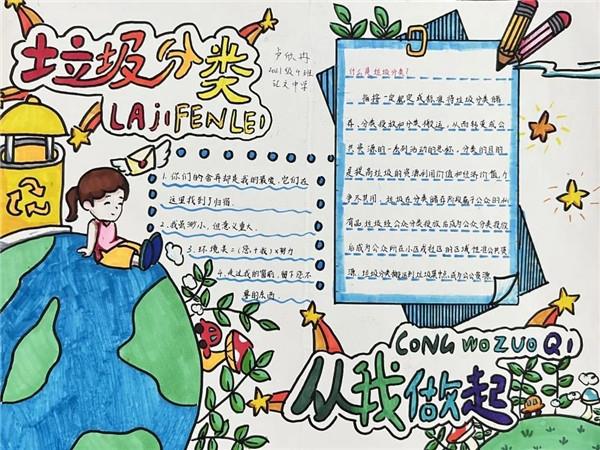 垃圾分类
LAJIFENLEI
2021级4班
什么是垃圾分类?
指按一定规定或标准将垃圾分类储
存、分类投放和分类搬运,从而转变成公
共资源的一系列活动的总称。分类的目的
是提高垃圾的资源利用价值和经济价值,力
争尽其用。垃圾在分类储存阶段属于公众的私
有品,垃圾经公众分类投放后成为公众分类投放
后成为公众所在小区或社区的区域性准公共资
源。垃圾分类搬运到垃圾集中点,成为公众资源
1.你们的舍弃却是我的最爱,它们在
这里找到了归宿。
2.我虽渺小,但意义重大。
3.环境美=(您+我)×努力
4.走过我的窗前,留下您不
要的东西
CONG WO ZUO QI
从我做起